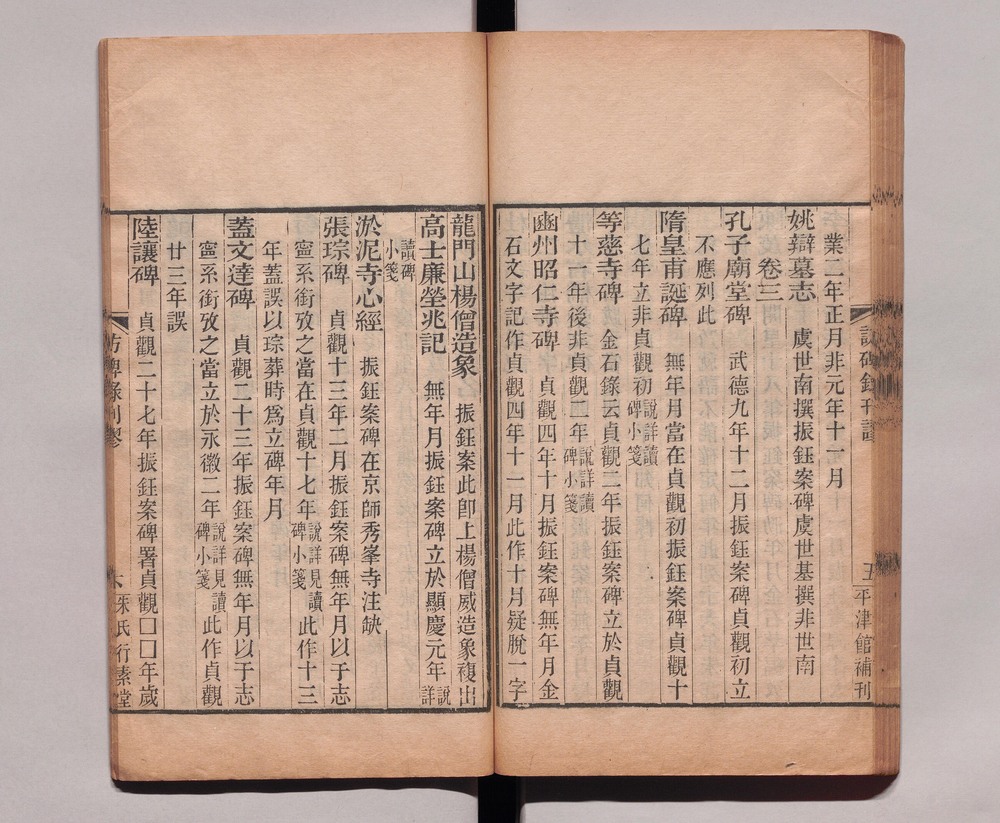 業二年正月非元年十一月
姚辯墓志　虞世南撰振鈺案碑虞世基撰非世南
卷三
孔子廟堂碑　武德九年十二月振鈺案碑貞觀初立
不應列此
隋皇甫誕碑　無年月當在貞觀初振鈺案碑貞觀十
七年立非貞觀初說詳讀碑小箋
等慈寺碑　金石錄云貞觀二年振鈺案碑立於貞觀
十一年後非貞觀二年說詳讀碑小箋
豳州昭仁寺碑　貞觀四年十月振鈺案碑無年月金
石文字記作貞觀四年十一月此作十月疑脫一字
訪碑錄刊謬
五
平津館補刊
龍門山楊僧造象　振鈺案此卽上楊僧威造象複出
高士廉塋兆記　無年月振鈺案碑立於顯慶元年說詳
讀碑小箋
淤泥寺心經　振鈺案碑在京師秀峯寺注缺
張琮碑　貞觀十三年二月振鈺案碑無年月以于志
寗系銜攷之當在貞觀十七年說詳見讀碑小箋此作十三
年蓋誤以琮葬時爲立碑年月
蓋文達碑　貞觀二十三年振鈺案碑無年月以于志
寗系銜攷之當立於永徽二年說詳見讀碑小箋此作貞觀
廿三年誤
陸讓碑　貞觀二十七年振鈺案碑署貞觀囗囗年歲
訪碑錄刊謬
六
朱氏行素堂